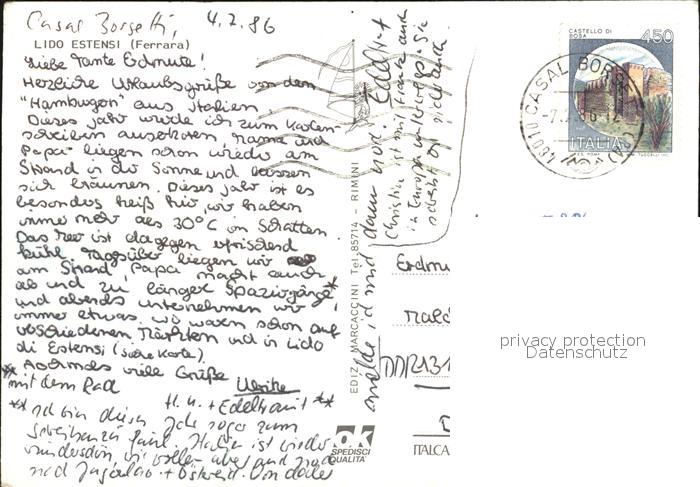 Casal Borsetti, 4.7.86
LIDO ESTENSI (Ferrara)
Liebe Tante Erdmute!
Herzliche Urlaubsgrüße von den
"Hamburgern" aus Italien
Dieses Jahr wurde ich zum Karten-
schreiben auserkoren, Mama und
Papa liegen schon wieder am
Strand in der Sonne und lassen
sich bräunen. Dieses Jahr ist es
besonders heiß hier, wir haben
immer mehr als 30°C im Schatten.
Das Meer ist dagegen erfrischend
kühl. Tagsüber liegen wir
am Strand, Papa macht auch
ab und zu länger Spaziergänge*
und abends unternehmen wir
immer etwas. Wir waren schon auf
verschiedenen Märkten und in Lido
di Estensi (siehe Karte).
Nochmals viele Grüße
Ulrike
* mit dem Rad
H. U. + Edeltraut **
** Ich bin dieses Jahr sogar zum
ist wieder
wir wollen aber
nach Jugoslaw. + Österreich. Von dort
melde ich mich dann noch. Edeltraut
Christian ist mit Frank auch
in Europa unterwegs. Sie
EDIZ. MARCACCINI Tel. 85714 - RIMINI
ok
SPEDISCI
QUALITA'
CASTELLO DI
ROSA
450
ITALIA
48010 CASAL BORSETTI (RA)
Erdmu
DDR 131
ITALCA
privacy protection
Datenschutz